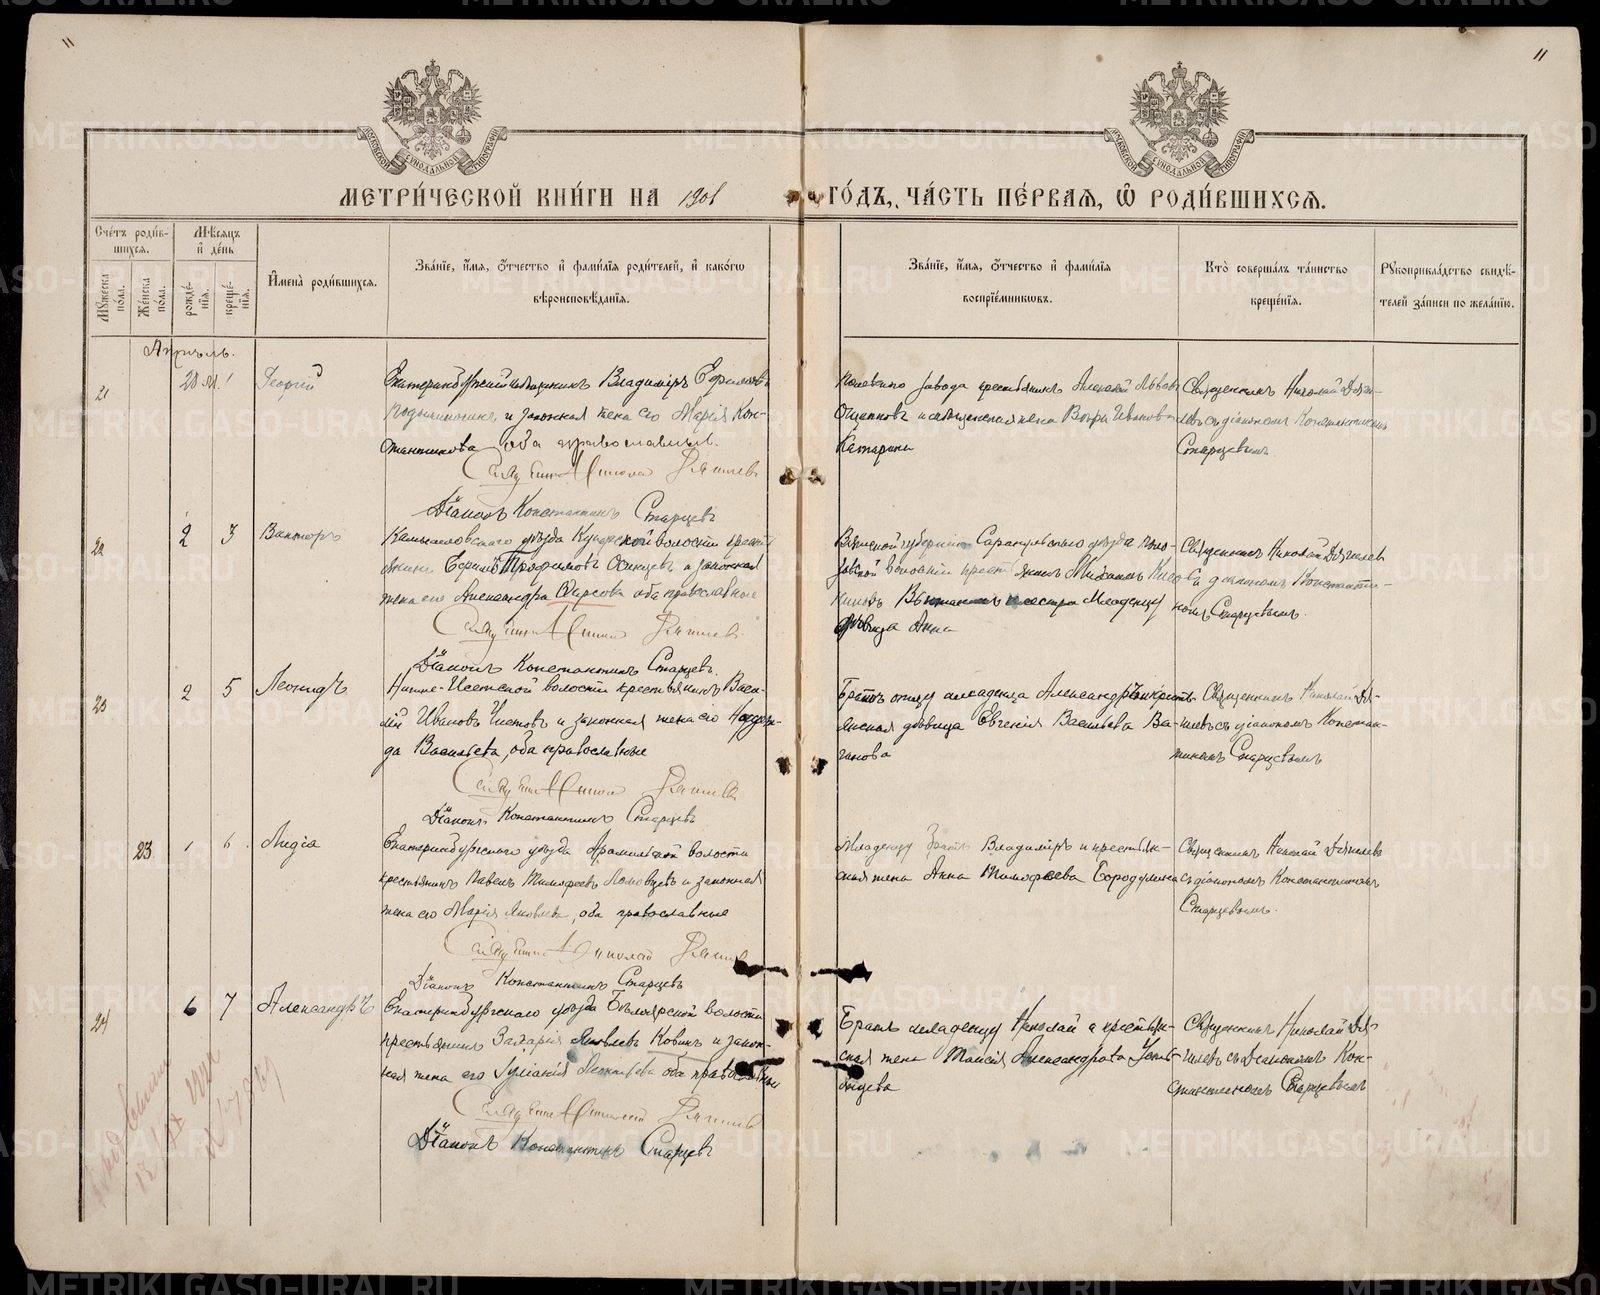 11
11
МЕТРИ́ЧЕСКОЙ КНИ́ГИ НА 1901 ГО́ДЪ, ЧА́СТЬ ПЕ́РВАЯ, Ѽ РОДИ́ВШИХСЯ.
Сче́тъ роди́в-
шихся.
Мѣ́сяцъ
и де́нь
Мꙋ́жеска
по́ла.
Же́нска
по́ла.
рожде́-
нїя.
креще́-
нїя.
Имена̀ роди́вшихся.
Зва́нїе, и́мя, ѻ́тчество и фами́лїя роди́телей, и како́гѡ
вѣроисповѣ́данїя.
Зва́нїе, и́мя, ѻ́тчество и фами́лїя
воспрїе́мниковъ.
Кто̀ соверша́лъ та́инство
креще́нїя.
Рꙋкоприкла́дство свидѣ́-
телей за́писи по жела́нїю.
Апрѣль.
21
Георгій
Екатеринбургскій Владиміръ Ефимовъ
и законная жена его Марія Кон-
стантинова оба православные.
Священникъ Николай Дягилевъ
Діаконъ Константинъ Старцевъ
завода Алексѣй Львовъ
Ощепковъ и жена Вѣра Иванова
Катарина
Священникъ Николай Дяги-
левъ съ діакономъ Константиномъ
Старцевымъ.
22 2 3 Викторъ
Камышловскаго уѣзда волости крест-
янинъ Трофимовъ Осинцевъ и законная
жена его Александра Фирсова оба православные
Священникъ Николай Дягилевъ
Діаконъ Константинъ Старцевъ.
Вятской губерніи Сарапульскаго уѣзда
волости Михаилъ
сестра младенцу
дѣвица Анна
Священникъ Николай Дягилевъ
съ діакономъ Константи-
номъ Старцевымъ.
23 2 5 Леонидъ
Нижне-Исетской волости крестьянинъ Васи-
лій Ивановъ Чистовъ и законная жена его Надеж-
да Васильева, оба православные
Священникъ Николай Дягилевъ
Діаконъ Константинъ Старцевъ
Братъ отцу младенца Александръ и кресть-
янская дѣвица Евгенія Васильева Ва-
ганова
Священникъ Николай Дя-
гилевъ съ діакономъ Констан-
тиномъ Старцевымъ
23 1 6 Лидія
Екатеринбургскаго уѣзда Арамильской волости
крестьянинъ Павелъ Тимофеевъ и законная
жена его Марія Яковлева, оба православные
Священникъ Николай Дягилевъ
Діаконъ Константинъ Старцевъ
Младенцу братъ Владиміръ и крестьян-
ская жена Анна Тимофеева Бородулина
Священникъ Николай Дягилевъ
съ діакономъ Константиномъ
Старцевымъ.
24 6 7 Александръ
Екатеринбургскаго уѣзда Бѣлоярской волости
крестьянинъ Захарій Яковлевъ Ковинъ и закон-
ная жена его Іуліанія Леонтьева оба православные
Священникъ Николай Дягилевъ
Діаконъ Константинъ Старцевъ
Братъ младенцу Николай и крестьян-
ская жена Таисія Александрова
Священникъ Николай Дя-
гилевъ съ Діакономъ Кон-
стантиномъ Старцевымъ